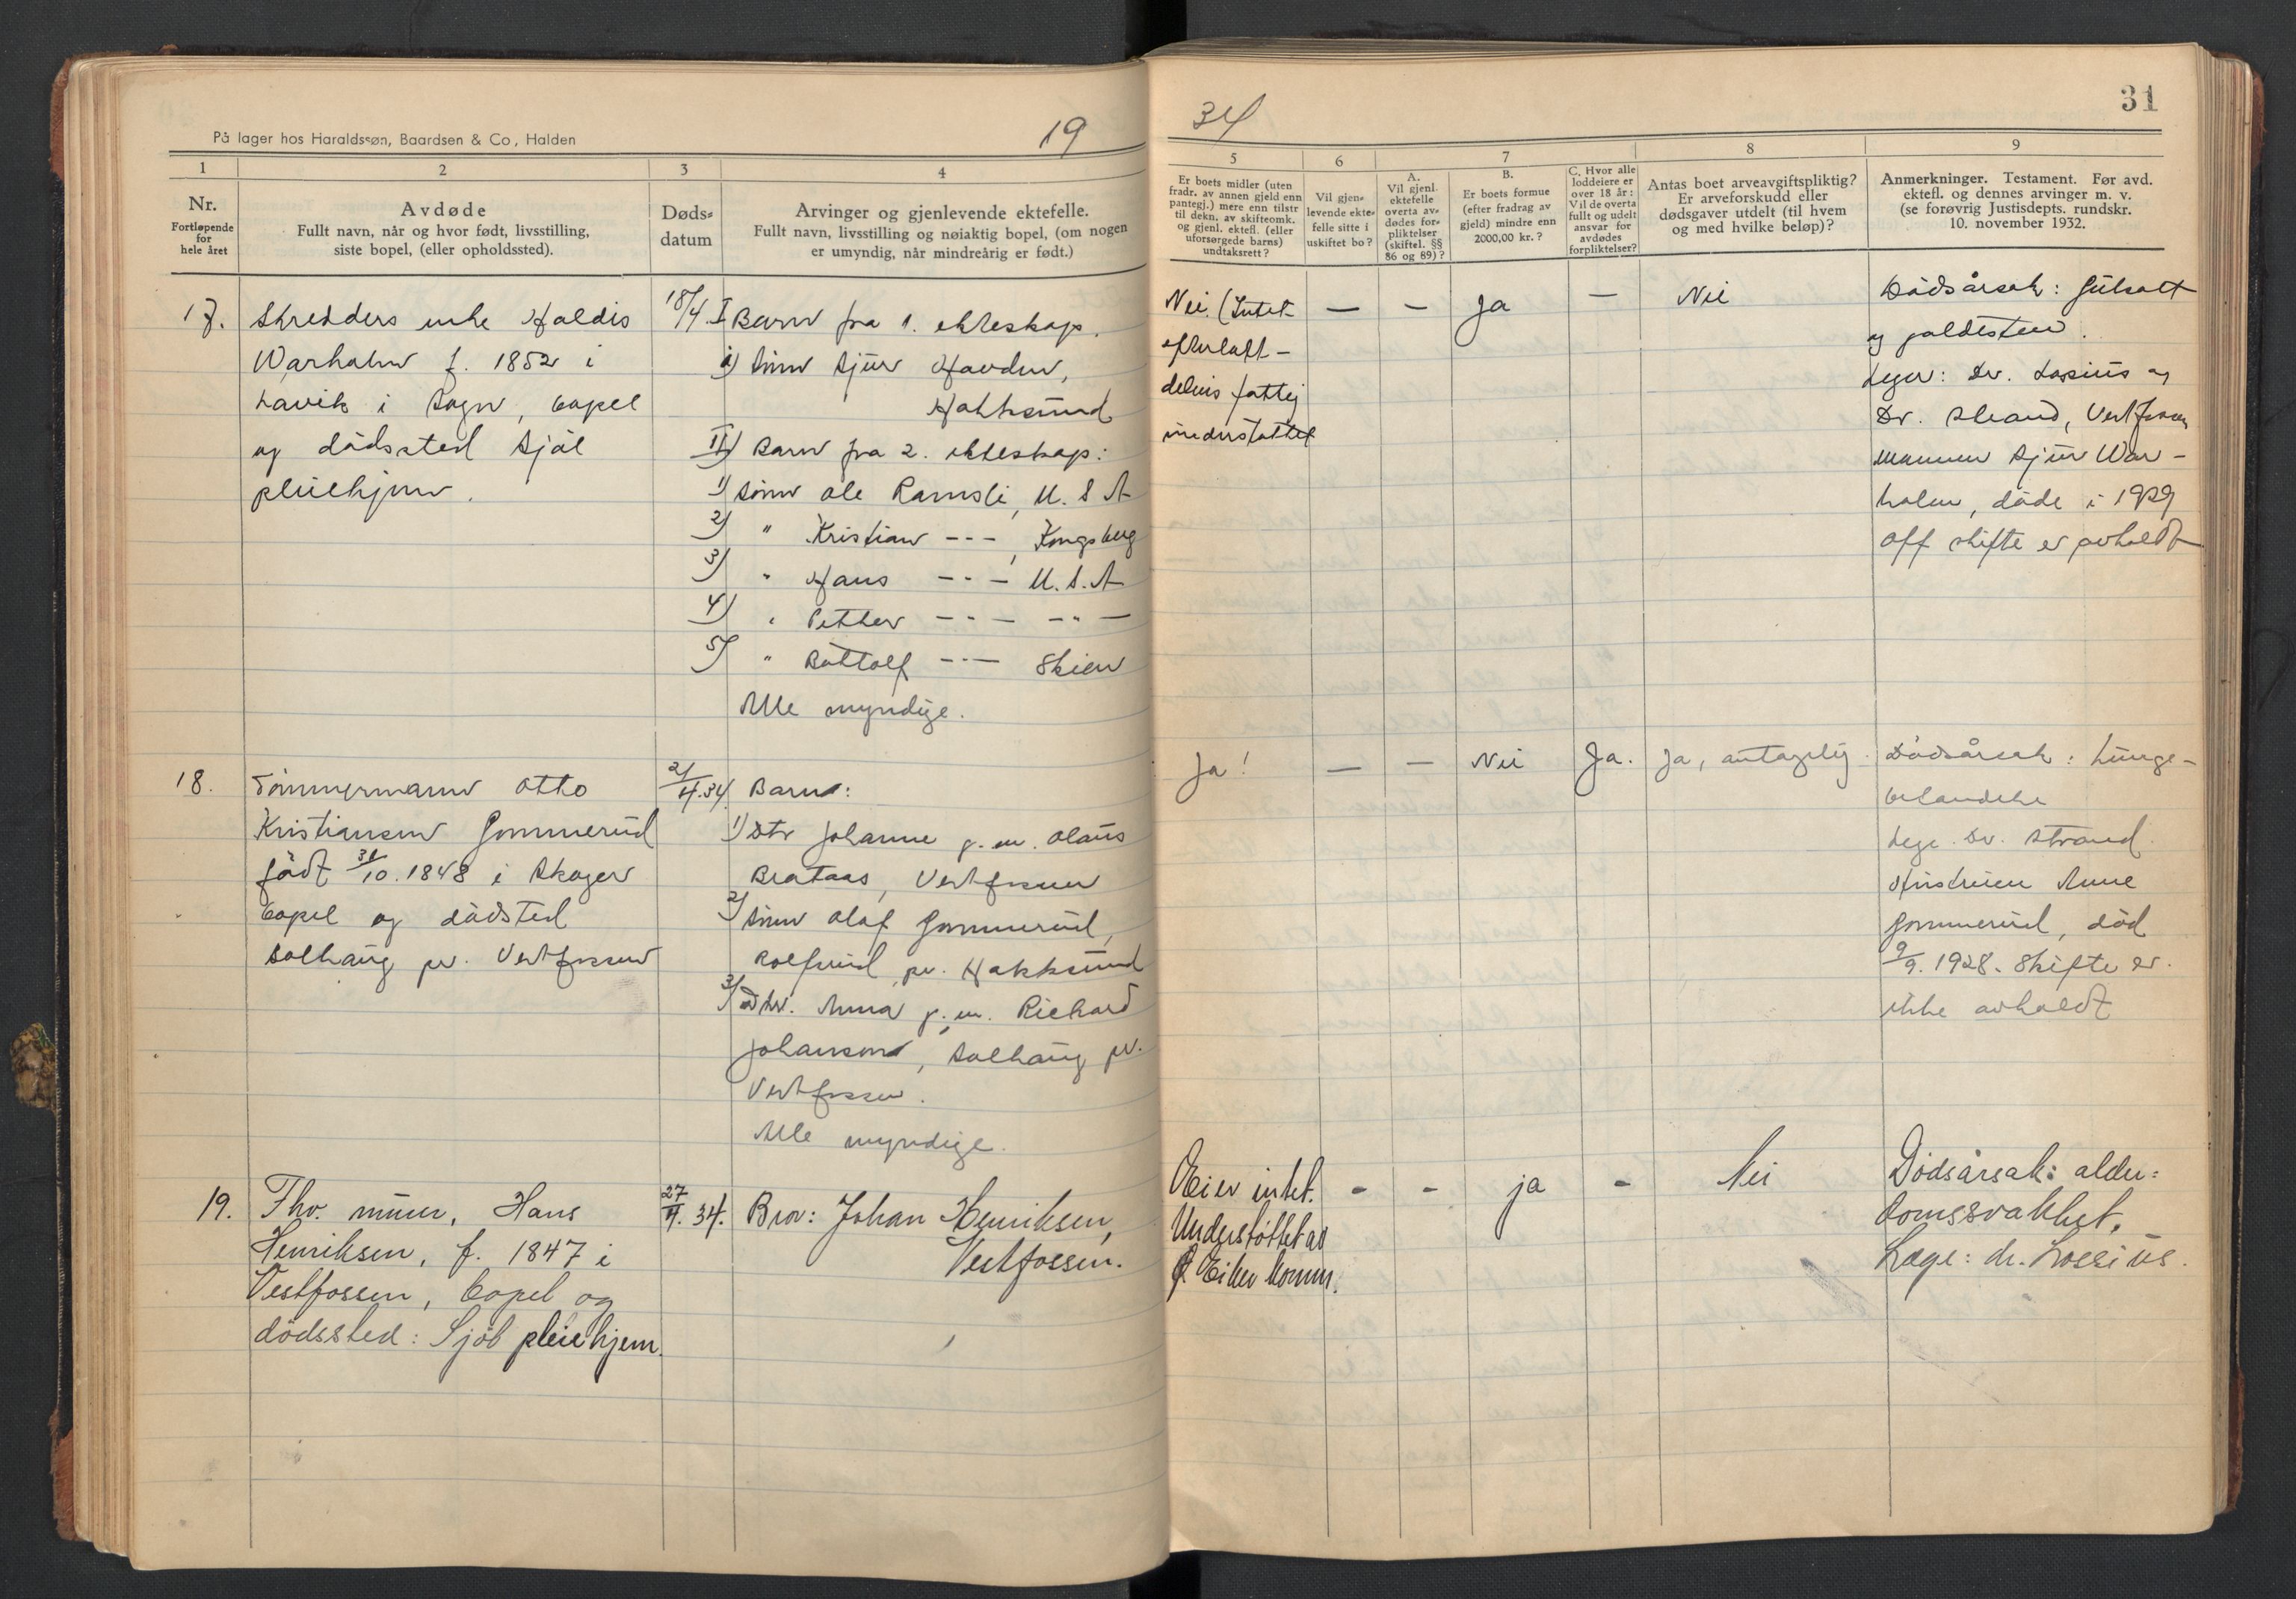 På lager hos Haraldssøn, Baardsen & Co, Halden
19
34
31
1
2
3
4
5
6
7
8
9
Nr.
Fortløpende
for
hele året
Avdøde
Fullt navn, når og hvor født, livsstilling,
siste bopel, (eller opholdssted).
Døds-
datum
Arvinger og gjenlevende ektefelle.
Fullt navn, livsstilling og nøiaktig bopel, (om nogen
er umyndig, når mindreårig er født.)
Er boets midler (uten
fradr. av annen gjeld enn
pantegj.) mere enn tilstr
til dekn. av skifteomk.
og gjenl. ektefl. (eller
uforsørgede barns)
undtaksrett?
Vil gjen-
levende ekte-
felle sitte i
uskiftet bo?
A.
Vil gjenl.
ektefelle
overta av-
dødes for-
pliktelser
(skiftel. §§
86 og 89)?
B.
Er boets formue
(efter fradrag av
gjeld) mindre enn
2000,00 kr.?
C. Hvor alle
loddeiere er
over 18 år:
Vil de overta
fullt og udelt
ansvar for
avdødes
forpliktelser?
Antas boet arveavgiftspliktig?
Er arveforskudd eller
dødsgaver utdelt (til hvem
og med hvilke beløp)?
Anmerkninger. Testament. Før avd.
ektefl. og dennes arvinger m. v.
(se forøvrig Justisdepts. rundskr.
10. november 1932.
17.
Skredders enke Haldis
Warholm f. 1852 i
Lavik i Sogn, bopel
og dødssted Sjøl
pleiehjem.
18/4.
I Barn fra 1. ekteskap.
1) Sønn Sjur Havden,
Hokksund
II) Barn fra 2. ekteskap:
1) Sønn Ole Ramsli, U. S A
2) " Kristian - - - , Kongsberg
3) " Hans - " - U. S. A
4) " Petter - " - - " -
5) " Bottolf - " - Skien
Alle myndige.
Nei. (Intet
efterlatt -
delvis fattig
understøttet
—
—
Ja
—
Nei
Dødsårsak: Gulsott
og galdesten.
Leger: Dr. Lossius og
Dr. Strand, Vestfossen
Mannen Sjur War-
holm, døde i 1929
Off skifte er avholdt
18.
Tømmermann Otto
Kristiansen Gommerud
født 31/10. 1848 i Skoger
Bopel og dødsted
Solhaug pr. Vestfossen
2/4. 34.
Barn:
1) Dtr Johanne g. m. Olaus
Brataas, Vestfossen
2) Sønn Olaf Gommerud,
Rolfsrud, pr. Hokksund
3) Dtr. Anna g. m. Richard
Johansen, Solhaug pr.
Vestfossen.
Alle myndige.
Ja!
—
—
Nei
Ja.
Ja, antagelig.
Dødsårsak: Lunge-
betendelse
Lege. Dr. Strand.
Hustruen Anne
Gommerud, død
9/9. 1928. Skifte er
ikke avholdt
19.
Fhv. murer, Hans
Henriksen, f. 1847 i
Vestfossen, bopel og
dødssted: Sjøl pleiehjem.
27/4. 34.
Bror: Johan Henriksen,
Vestfossen.
Eier intet.
Understøttet av
Ø. Eiker komm.
-
-
ja
-
Nei
Dødsårsak: alder-
domssvakhet.
Læge: dr. Lossius.